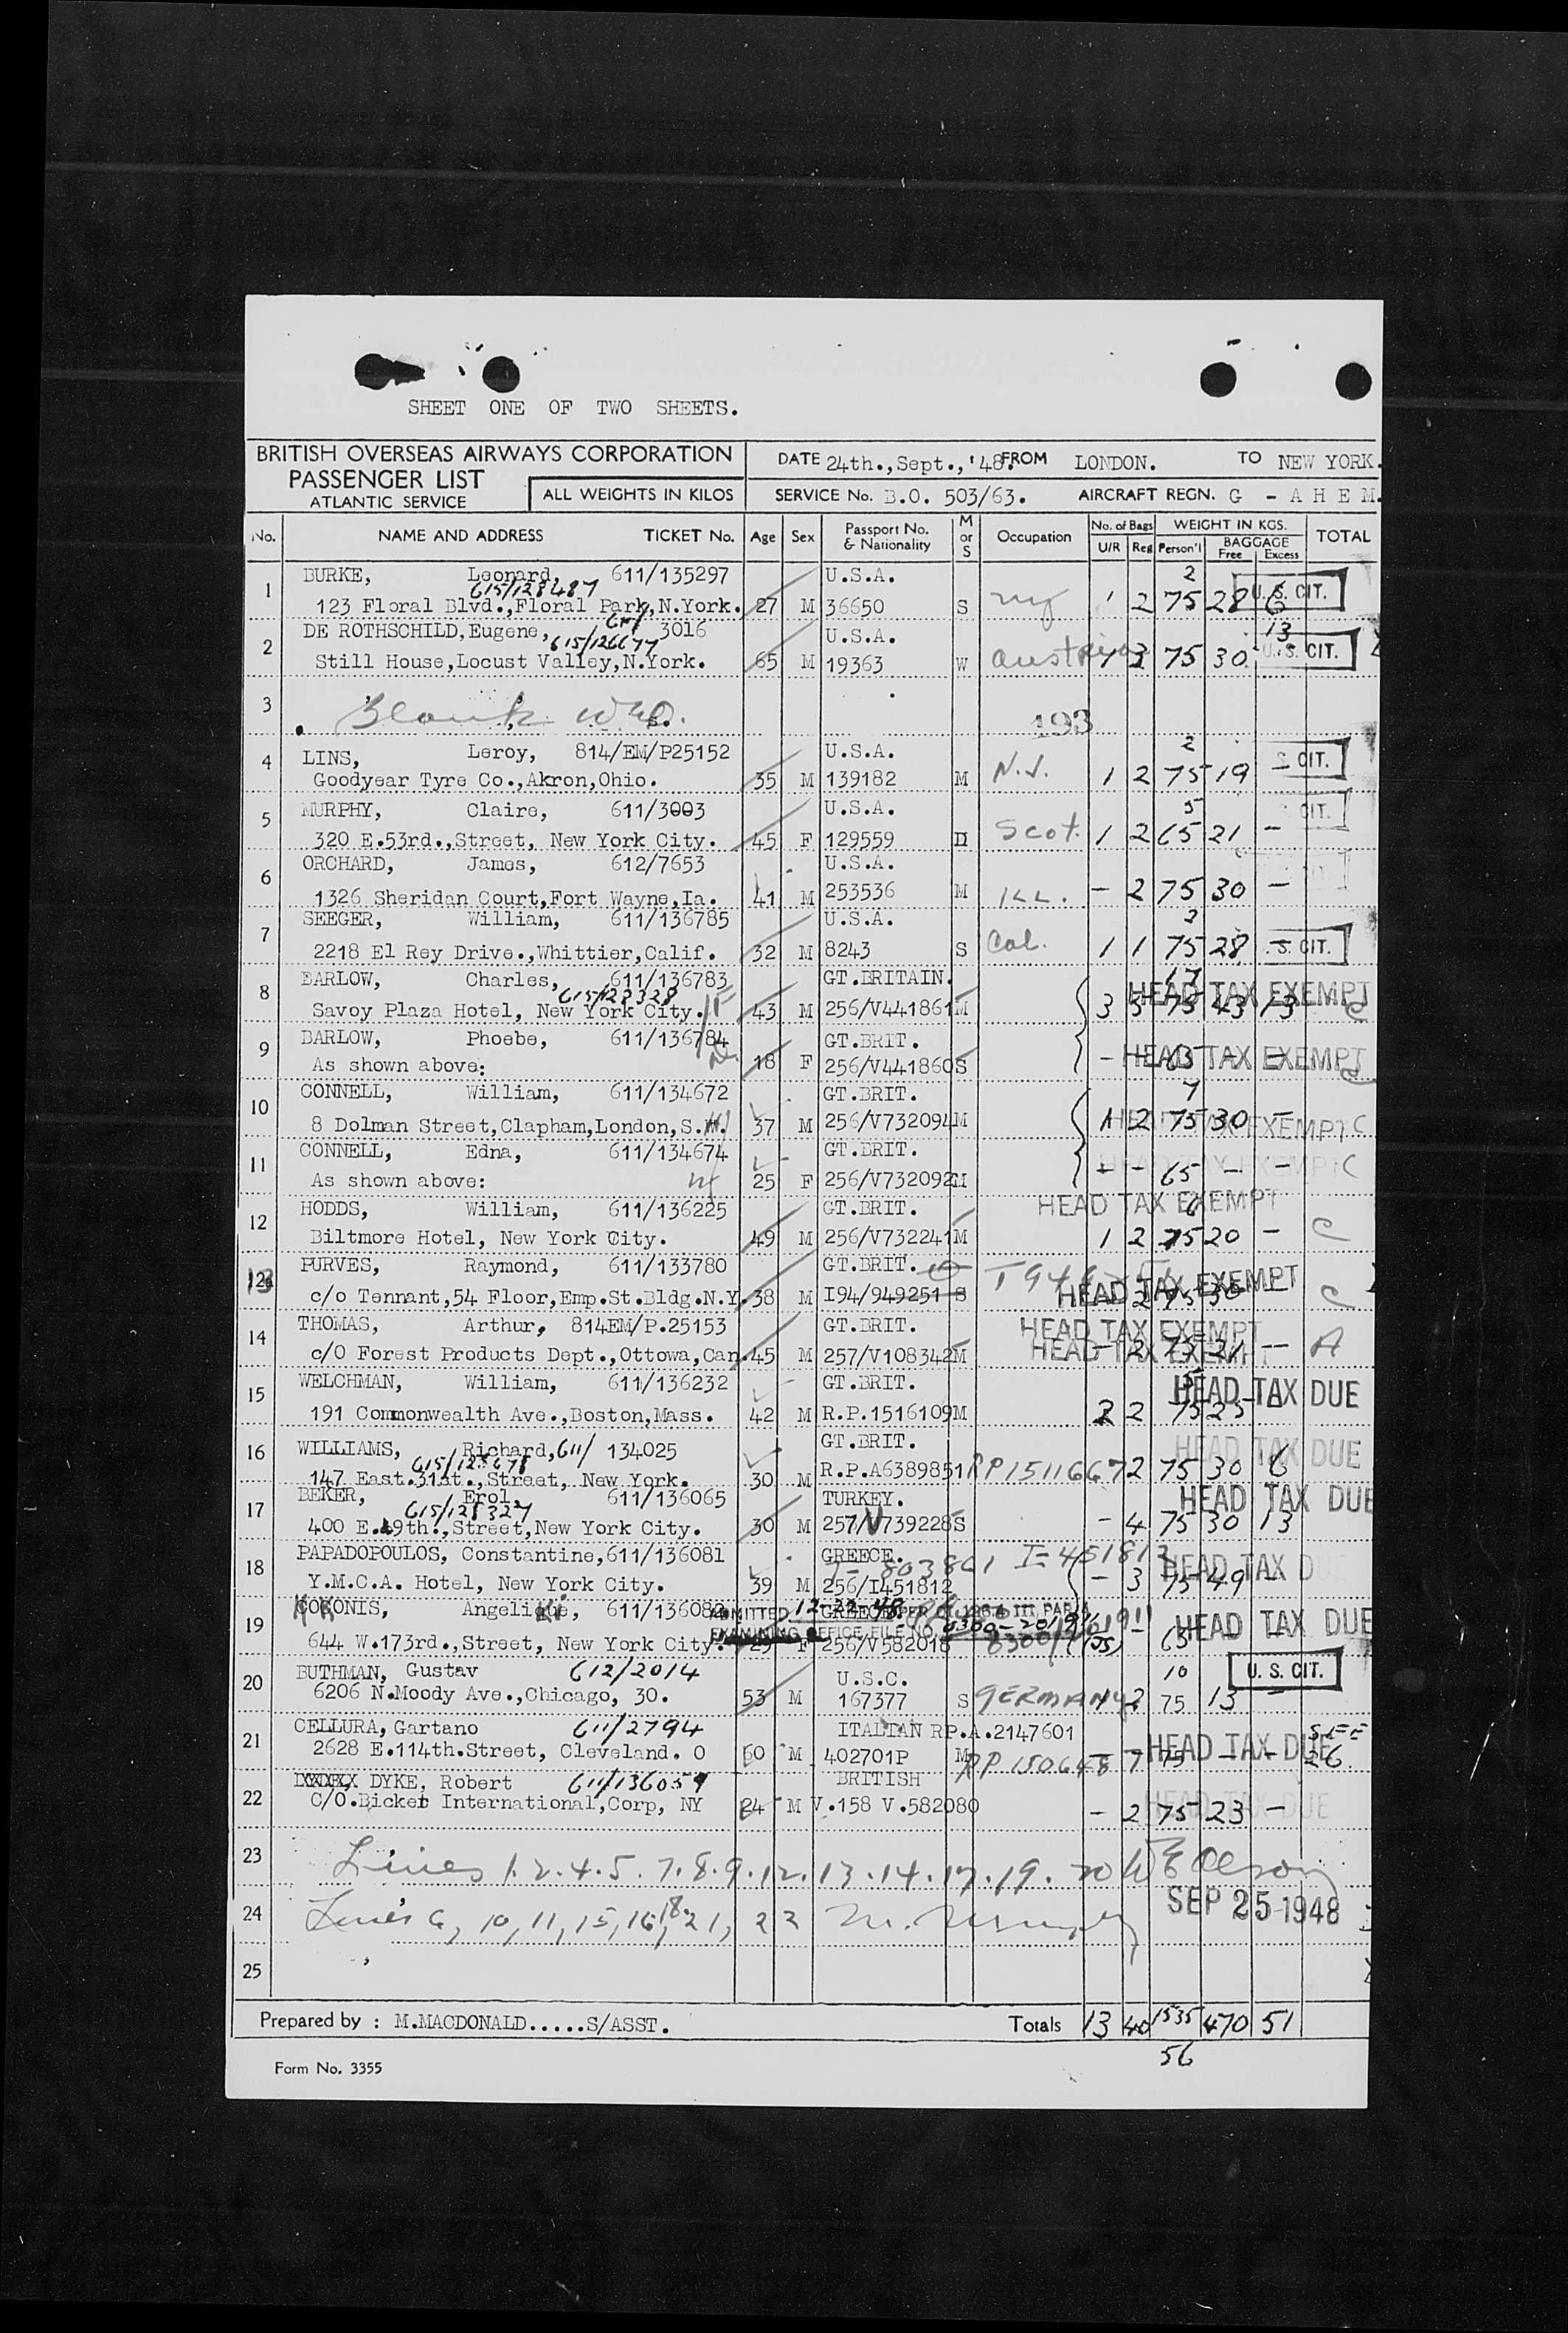 SHEET ONE OF TWO SHEETS.
BRITISH OVERSEAS AIRWAYS CORPORATION
PASSENGER LIST
ATLANTIC SERVICE
ALL WEIGHTS IN KILOS
DATE 24th.,Sept.,'48. FROM LONDON. TO NEW YORK.
SERVICE No. B.O. 503/63. AIRCRAFT REGN. G - A H E M.
No. NAME AND ADDRESS TICKET No. Age Sex Passport No. & Nationality M or S Occupation No. of Bags U/R Reg WEIGHT IN KGS. Person'l BAGGAGE Free Excess TOTAL
1 BURKE, Leonard, 611/135297 U.S.A. 2 U. S. CIT.
615/128487
123 Floral Blvd.,Floral Park,N.York. 27 M 36650 S ny 1 2 75 28 6
2 DE ROTHSCHILD,Eugene, 611/ 3016 U.S.A. 13
615/126677
Still House,Locust Valley,N.York. 65 M 19363 W Austria 1 3 75 30 U. S. CIT.
3 Blank WEO. 193
4 LINS, Leroy, 814/EM/P25152 U.S.A. 2 S. CIT.
Goodyear Tyre Co.,Akron,Ohio. 35 M 139182 M N.J. 1 2 75 19 -
5 MURPHY, Claire, 611/3003 U.S.A. 5 CIT.
320 E.53rd.,Street, New York City. 45 F 129559 D Scot. 1 2 65 21 -
6 ORCHARD, James, 612/7653 U.S.A.
1326 Sheridan Court,Fort Wayne,Ia. 41 M 253536 M ILL. - 2 75 30 -
7 SEEGER, William, 611/136785 U.S.A. 3
2218 El Rey Drive.,Whittier,Calif. 32 M 8243 S Cal. 1 1 75 28 - S. CIT.
8 BARLOW, Charles, 611/136783 GT.BRITAIN. 17 HEAD TAX EXEMPT
615/128328
Savoy Plaza Hotel, New York City. 43 M 256/V441861 M 3 3 75 43 13 C
9 BARLOW, Phoebe, 611/136784 GT.BRIT. HEAD TAX EXEMPT
As shown above: 18 F 256/V441860 S - - 65 - - C
10 CONNELL, William, 611/134672 GT.BRIT. 7
8 Dolman Street,Clapham,London,S.W. 37 M 256/V732094 M 1 2 75 30 - HEAD TAX EXEMPT C
11 CONNELL, Edna, 611/134674 GT.BRIT. HEAD TAX EXEMPT C
As shown above: 25 F 256/V732092 M - - 65 - -
12 HODDS, William, 611/136225 GT.BRIT. HEAD TAX EXEMPT 6
Biltmore Hotel, New York City. 49 M 256/V732241 M 1 2 75 20 - C
13 PURVES, Raymond, 611/133780 GT.BRIT. HEAD TAX EXEMPT
c/o Tennant,54 Floor,Emp.St.Bldg.N.Y. 38 M I94/949251 S 2 75 30 - C
14 THOMAS, Arthur, 814EM/P.25153 GT.BRIT. HEAD TAX EXEMPT
c/O Forest Products Dept.,Ottowa,Can. 45 M 257/V108342 M HEAD TAX EXEMPT - 2 75 21 - A
15 WELCHMAN, William, 611/136232 GT.BRIT. 5 HEAD TAX DUE
191 Commonwealth Ave.,Boston,Mass. 42 M R.P.1516109 M 2 2 75 25
16 WILLIAMS, Richard, 611/ 134025 GT.BRIT. HEAD TAX DUE
147 East.31st.,Street, New York. 30 M R.P.A6389851 RP1511667 2 75 30 6
17 BEKER, Erol 611/136065 TURKEY. HEAD TAX DUE
615/128327
400 E.49th.,Street,New York City. 30 M 257/V739228 S - 4 75 30 13
18 PAPADOPOULOS, Constantine,611/136081 GREECE. 803861 I=451812 HEAD TAX D
Y.M.C.A. Hotel, New York City. 39 M 256/I451812 - 3 75 49 -
19 KOKONIS, Angelique, 611/136082 ADMITTED 12-22-48 GREECE
EXAMINING OFFICE FILE NO. 0300-
644 W.173rd.,Street, New York City. 29 F 256/V582018 65 - HEAD TAX DUE
20 BUTHMAN, Gustav 612/2014 U.S.C. 10 U. S. CIT.
6206 N.Moody Ave.,Chicago, 30. 53 M 167377 S GERMANY 2 75 13 -
21 CELLURA, Gartano 611/2794 ITALIAN RP.A.2147601 SEE
2628 E.114th.Street, Cleveland. O 60 M 402701P M RP 150648 7 75 - - HEAD TAX DUE 26.
22 DYKE, Robert 611/136059 BRITISH
C/O.Bicker International,Corp, NY 24 M V.158 V.582080 - 2 75 23 - HEAD TAX DUE
23 Lines 1.2.4.5.7.8.9.12.13.14.17.19.20 WE Olson
24 Lines 6, 10, 11, 15, 16, 18, 21, 22 M. Murphy SEP 25 1948
25
Prepared by : M.MACDONALD.....S/ASST. Totals 13 40 1535 470 51
56
Form No. 3355